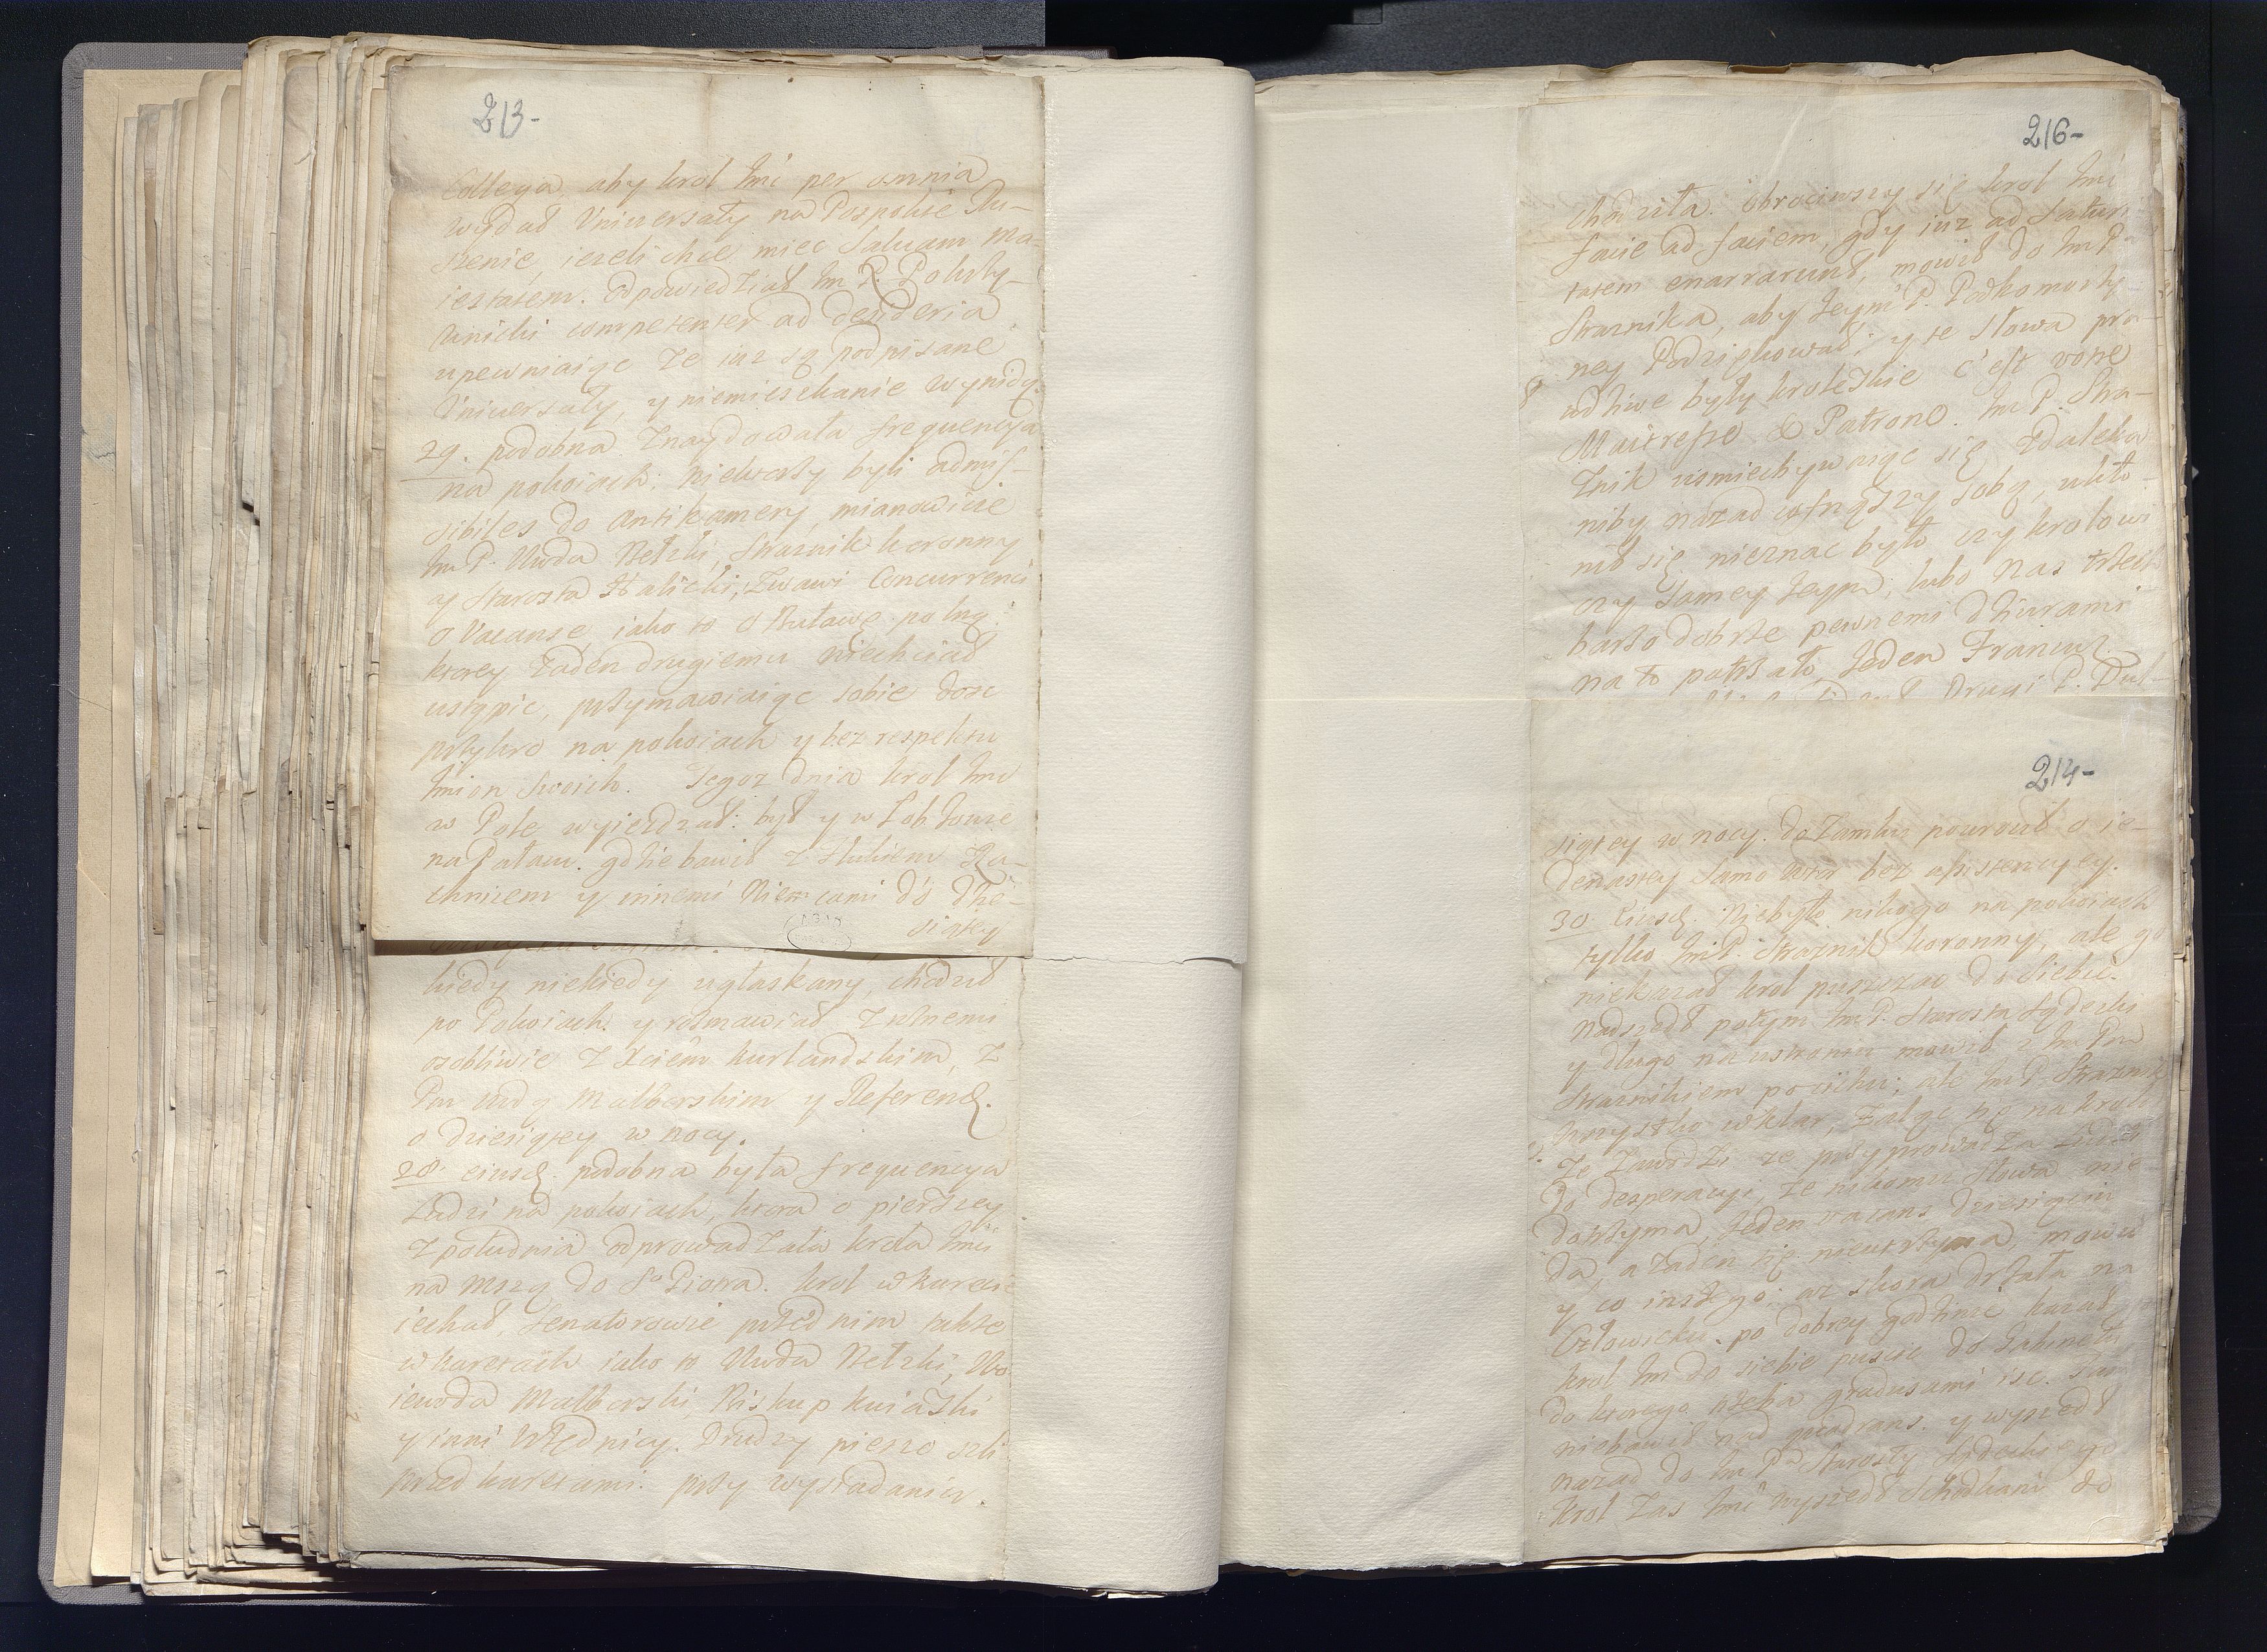 213-
Collega, aby krol Imć per omnia
wydał Vniuersały na Pospolite Ru-
szenie, iezeli chce miec Saluam Ma-
iestatem. Odpowiedział Im P. Podsty-
competenter ad desideria
upewniaiąc ze iuz są podpisane
Vniuersały, y niemieszkanie wynidą.
29. podobna znaydowała frequencya
na pokoiach: niektorzy byli admis-
sibiles do Antikamery, mianowicie
Im P. Wwda Bełzki, Straznik koronny
y Starosta Halicki, Concurrenci
o Vacanse, iako to o Buławę polną:
ktorey zaden drugiemu niechciał
ustąpic, przymawiaiąc sobie dosc
przykro na pokoiach y bez respektu
Imion Swoich. Tegoz dnia krol Imc
w Pole wyiezdzał: był y w Łobzowie
na Pałacu. gdzie bawił z
y innemi Niemcami do dzie-
siątey
kiedy niekiedy ugłaskany, chodził
po Pokoiach. y rozmawiał z roznemi
osobliwie z Xciem kurlandzkim, z
Pm Wwdą Malborskim y Referend.
o dziesiątey w nocy.
28. eiusd. podobna była frequencya
Ludzi na pokoiach, ktora o pierwszey
z południa odprowadzała krola Imci
na Mszą do Sº Piotra. krol w karecie
iechał, Senatorowie przed nim takze
w karetach iako to Wwda Bełzki, Wo-
iewoda Malborski, Biskup kuiawski
y inni Vrzędnicy. Drudzy pieszo szli
przed karetami. przy wysiadaniu.
216-
chodziła. Obrociwszy się krol Imć
facie ad faciem, gdy iuz ad satie-
tatem enarrarunt, mowił do Im P.
Straznika, aby Ieym P. Podkomorzy-
ney Podziękował; y te słowa pra-
wdziwe były krolewskie c'est votre
Maitresse & Patrone. Im P. Stra-
znik usmiechywaiąc się zdaleka
niby nazad cofnąwszy , ukło-
nił się nieznac było czy krolowi
czy samey Ieym; lubo nas trzech
barzo dobrze pewnemi dziurami
na to patrzało, Ieden Francuz
Drugi P.
214-
siątey w nocy. do Zamku powrocił o ie-
denastey Samo wtor bez assistencyey.
30. Eiusd. Niebyło nikogo na pokoiach
tylko Im P. Straznik koronny, ale go
niekazał krol puszczac do Siebie.
Nadszedł potym Im P. Starosta Sądecki
y długo na ustroniu mowił z Im Pm
Straznikiem po cichu; ale Im P. Straznik
wszystko wklar, zaląc się na krola
Ze zawodzi ze przyprowadza Ludzi
do desperacyi, ze nikomu słowa nie
dotrzyma, Ieden vacans dziesiąciu
da, a zaden się nieutrzyma, mowił
y co inszego: az skora drzała na
Człowieku. po dobrey godzinie kazał
krol Im do siebie puscic do Gabinetu
do ktorego trzeba gradusami isc. tam
niebawił nad quadrans. y wyszedł
nazad do Im Pa Starosty Sądeckiego
krol zas Imć wyszedł Schodkami do